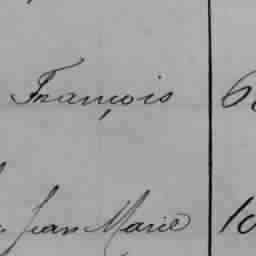 François
Jean Marie 10